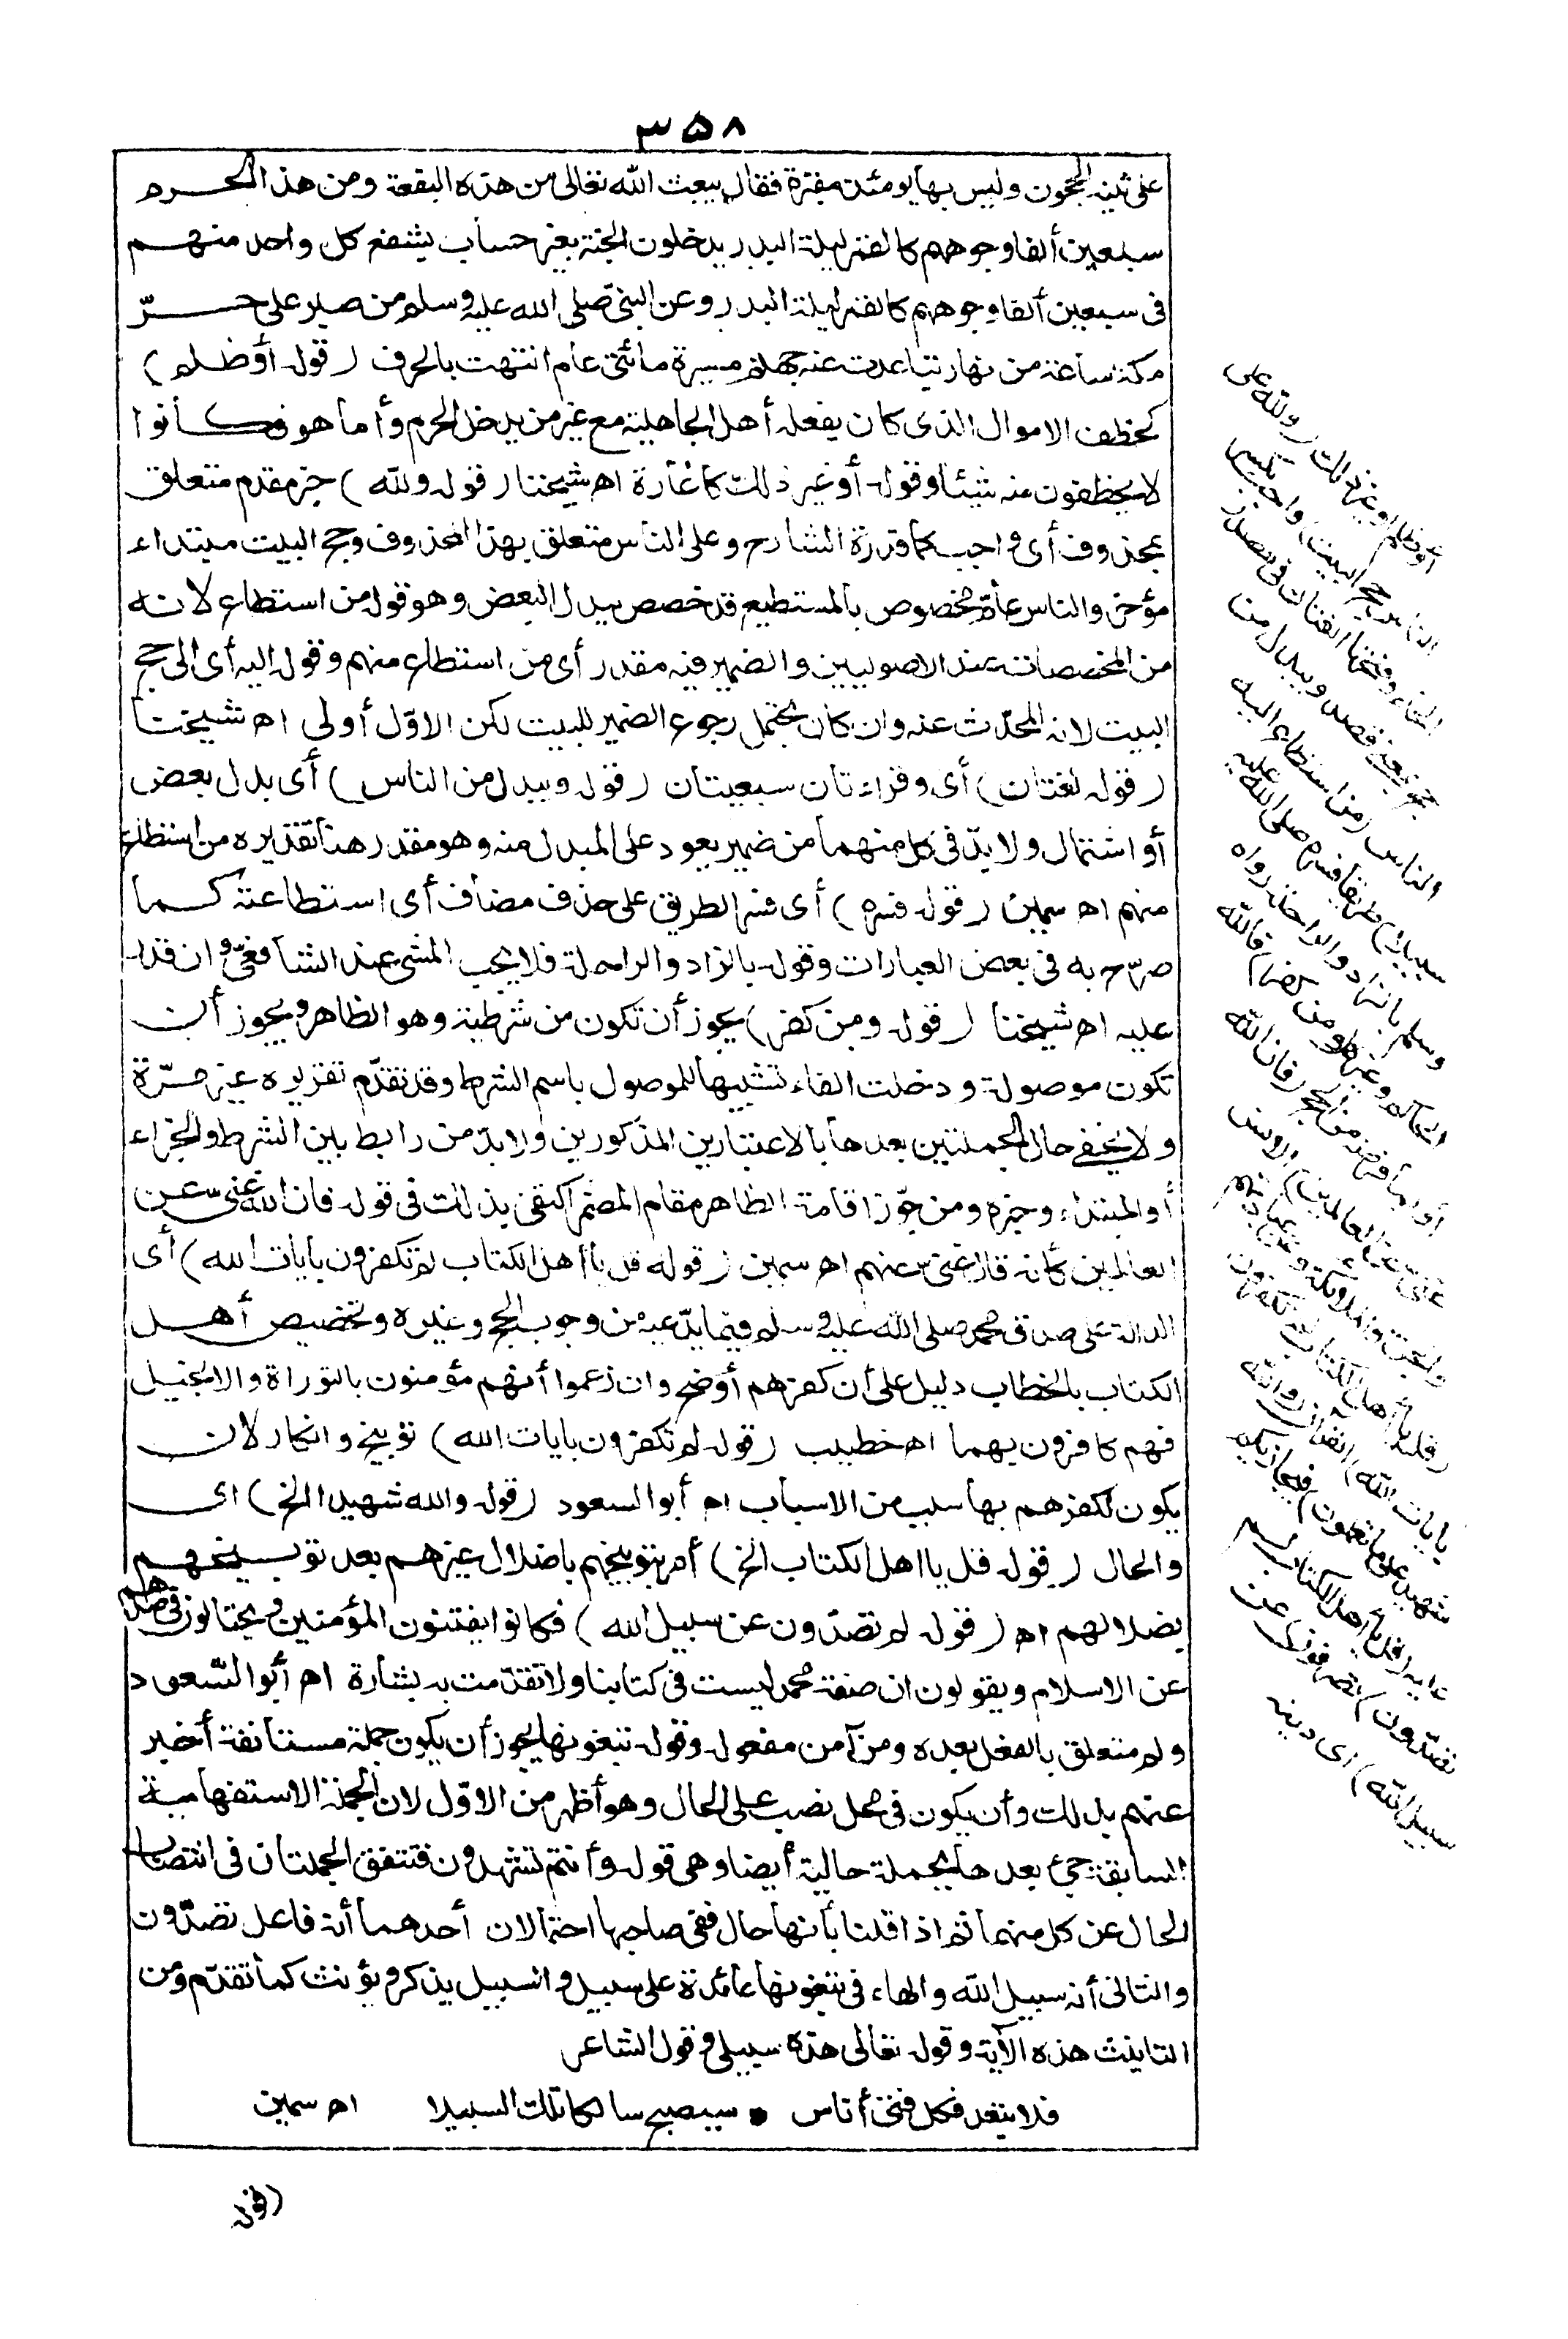 ٣٥٨
على ثنية الحجون وليس بها يومئذ مقبرة فقال يبعث الله تعالى من هذه البقعة ومن هذا الحرم
سبعين ألفا وجوههم كالقمر ليلة البدر يدخلون الجنة بغير حساب يشفع كل واحد منهم
فى سبعين ألفا وجوههم كالقمر ليلة البدر وعن النبى صلى الله عليه وسلم من صبر على حرّ
مكة ساعة من نهار تباعدت عنه جهنم مسيرة مائتى عام انتهت بالحرف (قوله أو ظلم)
كخطف الاموال الذى كان يفعله أهل الجاهلية مع غير من يدخل الحرم وأما هو فكانوا
لا يخطفون منه شيئا وقوله أو غير ذلك كاغارة اه شيخنا (قوله ولله) خبر مقدم متعلق
بمحذوف أى واجب كما قدره الشارح وعلى الناس متعلق بهذا المحذوف وحج البيت مبتداء
مؤخر والناس عام مخصوص بالمستطيع قد خصص ببدل البعض وهو قوله من استطاع لانه
من المخصصات عند الاصوليين والضمير فيه مقدر أى من استطاع منهم وقوله اليه أى الى حج
البيت لانه المحدّث عنه وان كان يحتمل رجوع الضمير للبيت لكن الاوّل أولى اه شيخنا
(قوله لغتان) أى وقراءتان سبعيتان (قوله ويبدل من الناس) أى بدل بعض
أو اشتمال ولا بدّ فى كل منهما من ضمير يعود على المبدل منه وهو مقدر هنا تقديره من استطاع
منهم اه سمين (قوله فسره) أى فسر الطريق على حذف مضاف أى استطاعته كما
صرّح به فى بعض العبارات وقوله بالزاد والراحلة فلا يجب المشى عند الشافعىّ وان قدر
عليه اه شيخنا (قوله ومن كفر) يجوز أن تكون من شرطية وهو الظاهر ويجوز أن
تكون موصولة ودخلت الفاء تشبيها للموصول باسم الشرط وقد تقدّم تقريره غير مرّة
ولا يخفى حال الجملتين بعدها بالاعتبارين المذكورين ولا بدّ من رابط بين الشرط والجزاء
أو المبتداء وخبره ومن جوّز اقامة الظاهر مقام المضمر اكتفى بذلك فى قوله فان الله غنىّ عن
العالمين كأنه قال غنى عنهم اه سمين (قوله قل يا أهل الكتاب لم تكفرون بآيات الله) أى
الدالة على صدق محمد صلى الله عليه وسلم فيما يدّعيه من وجوب الحج وغيره وتخصيص أهل
الكتاب بالخطاب دليل على أن كفرهم أوضح وان زعموا أنهم مؤمنون بالتوراة والانجيل
فهم كافرون بهما اه خطيب (قوله لم تكفرون بايات الله) توبيخ وانكار لان
يكون لكفرهم بها سبب من الاسباب اه أبو السعود (قوله والله شهيد الخ) اى
والحال (قوله قل يا اهل الكتاب الخ) أمر بتوبيخهم باضلال غيرهم بعد توبيخهم
بضلالهم اه (قوله لم تصدّون عن سبيل الله) فكانوا يفتنون المؤمنين ويحتالون فى صدّهم
عن الاسلام ويقولون ان صفة محمد ليست فى كتابنا ولا تقدّمت به بشارة اه أبو السّعود
ولم متعلق بالفعل بعده ومن آمن مفعوله وقوله تبغونها يجوز أن يكون جملة مستأنفة أخبر
عنهم بذلك وأن يكون فى محل نصب على الحال وهو أظهر من الاوّل لان الجملة الاستفهامية
السابقة جىء بعدها بجملة حالية أيضا وهى قوله وأنتم تشهدون فتتفق الجملتان فى انتصاب
الحال عن كل منهما ثم اذا قلنا بأنها حال ففى صاحبها احتمالان أحدهما أنه فاعل تصدّون
والثانى أنه سبيل الله والهاء فى تبغونها عائدة على سبيل والسبيل يذكر ويؤنث كما تقدّم ومن
التانيث هذه الآية وقوله تعالى هذه سبيلى وقول الشاعر
فلا تبعد فكل فتى أناس • سيصبح سالكا تلك السبيلا اه سمين
(قوله
أو ظلم او غير ذلك (ولله على
الناس حج البيت) واجب بكسر
الحاء وفتحها لغتان فى مصدر
حج بمعنى قصد ويبدل من
الناس (من استطاع اليه
سبيلا) طريقا فسره صلى الله عليه
وسلم بالزاد والراحلة رواه
الحاكم وغيره (ومن كفر) بالله
أو بما فرضه من الحج (فان الله
غنى عن العالمين) الانس
والجن والملائكة وعن عبادتهم
(قل يا أهل الكتاب لم تكفرون
بايات الله) القرآن (والله
شهيد على ما تعملون) فيجازيكم
عليه (قل يا أهل الكتاب لم
تصدّون) تصرفون (عن
سبيل الله) اى دينه